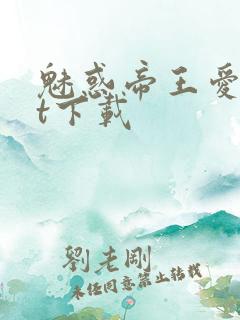 魅惑帝王愛
t下載
劉老剛
未經同意禁止轉載